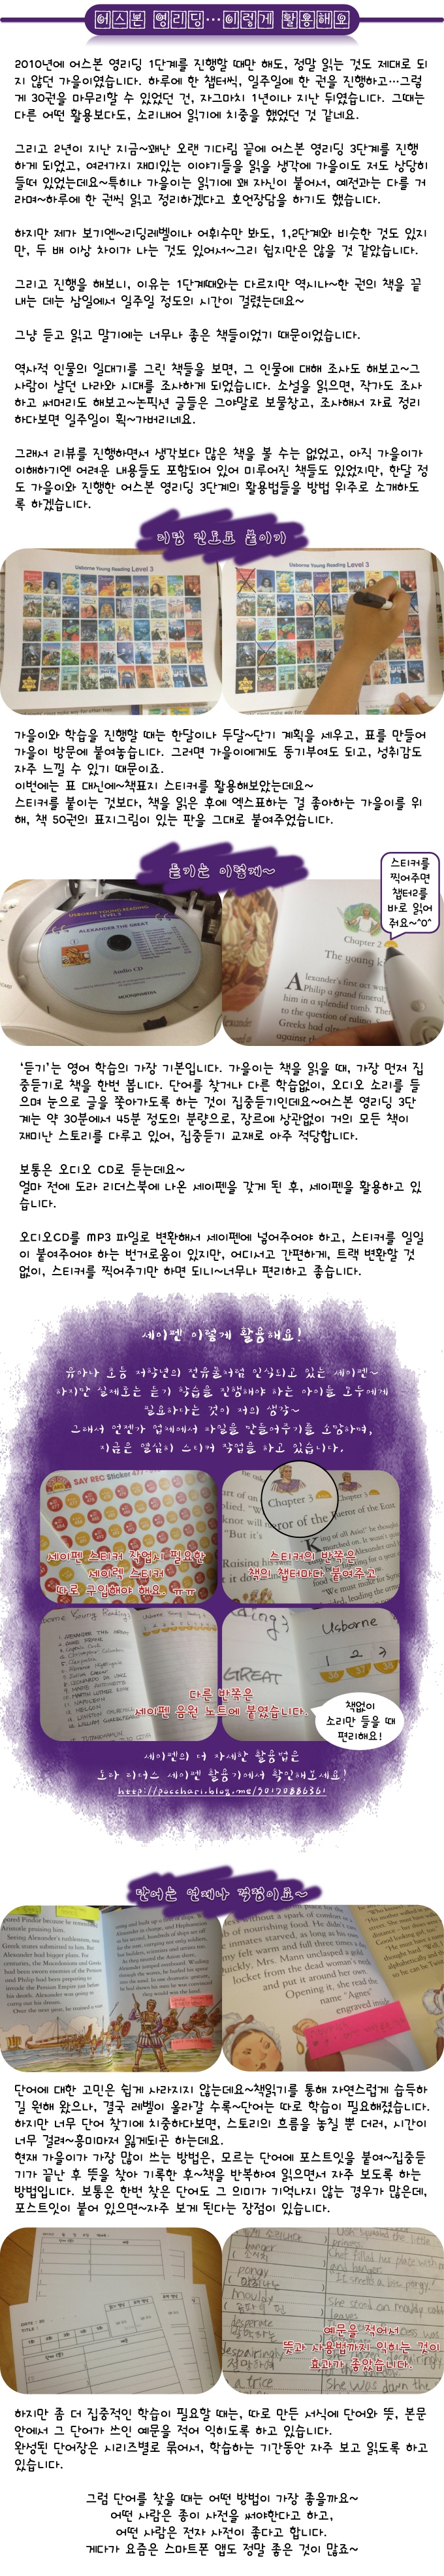 어스본 영리딩…이렇게 활용해요
2010년에 어스본 영리딩 1단계를 진행할 때만 해도, 정말 읽는 것도 제대로 되
지 않던 가을이였습니다. 하루에 한 챕터씩, 일주일에 한 권을 진행하고…그렇
게 30권을 마무리할 수 있었던 건, 자그마치 1년이나 지난 뒤였습니다. 그때는
다른 어떤 활용보다도, 소리내어 읽기에 치중을 했었던 것 같네요.
그리고 2년이 지난 지금~꽤나 오랜 기다림 끝에 어스본 영리딩 3단계를 진행
하게 되었고, 여러가지 재미있는 이야기들을 읽을 생각에 가을이도 저도 상당히
들떠 있었는데요~특히나 가을이는 읽기에 꽤 자신이 붙어서, 예전과는 다를 거
라며~하루에 한 권씩 읽고 정리하겠다고 호언장담을 하기도 했습니다.
하지만 제가 보기엔~리딩레벨이나 어휘수만 봐도, 1,2단계와 비슷한 것도 있지
만, 두 배 이상 차이가 나는 것도 있어서~그리 쉽지만은 않을 것 같았습니다.
그리고 진행을 해보니, 이유는 1단계때와는 다르지만 역시나~한 권의 책을 끝
내는 데는 삼일에서 일주일 정도의 시간이 걸렸는데요~
그냥 듣고 읽고 말기에는 너무나 좋은 책들이었기 때문이었습니다.
역사적 인물의 일대기를 그린 책들을 보면, 그 인물에 대해 조사도 해보고~그
사람이 살던 나라와 시대를 조사하게 되었습니다. 소설을 읽으면, 작가도 조사
하고 써머리도 해보고~논픽션 글들은 그야말로 보물창고, 조사해서 자료 정리
하다보면 일주일이 휙~가버리네요.
그래서 리뷰를 진행하면서 생각보다 많은 책을 볼 수는 없었고, 아직 가을이가
이해하기엔 어려운 내용들도 포함되어 있어 미루어진 책들도 있었지만, 한달 정
도 가을이와 진행한 어스본 영리딩 3단계의 활용법들을 방법 위주로 소개하도
록 하겠습니다.
리딩 진도표 붙이기
Usborne Young Reading Level 3
Usborne Young Reading Level 3
가을이와 학습을 진행할 때는 한달이나 두달~단기 계획을 세우고, 표를 만들어
가을이 방문에 붙여놓습니다. 그러면 가을이에게도 동기부여도 되고, 성취감도
자주 느낄 수 있기 때문이죠.
이번에는 표 대신에~책표지 스티커를 활용해보았는데요~
스티커를 붙이는 것보다, 책을 읽은 후에 엑스표하는 걸 좋아하는 가을이를 위
해, 책 50권의 표지그림이 있는 판을 그대로 붙여주었습니다.
듣기는 이렇게~
스티커를
찍어주면
챕터2를
바로 읽어
줘요~^0^
USBORNE YOUNG READING
LEVEL 3
ALEXANDER THE GREAT
Audio CD
Chapter 2
The young k
Alexander's first act was
Philip a grand funeral,
him in a splendid tomb. The
to the question of ruling
Greeks had alr
against th
'듣기'는 영어 학습의 가장 기본입니다. 가을이는 책을 읽을 때, 가장 먼저 집
중듣기로 책을 한번 봅니다. 단어를 찾거나 다른 학습없이, 오디오 소리를 들
으며 눈으로 글을 쫓아가도록 하는 것이 집중듣기인데요~어스본 영리딩 3단
계는 약 30분에서 45분 정도의 분량으로, 장르에 상관없이 거의 모든 책이
재미난 스토리를 다루고 있어, 집중듣기 교재로 아주 적당합니다.
보통은 오디오 CD로 듣는데요~
얼마 전에 도라 리더스북에 나온 세이펜을 갖게 된 후, 세이펜을 활용하고 있
습니다.
오디오CD를 MP3 파일로 변환해서 세이펜에 넣어주어야 하고, 스티커를 일일
이 붙여주어야 하는 번거로움이 있지만, 어디서고 간편하게, 트랙 변환할 것
없이, 스티커를 찍어주기만 하면 되니~너무나 편리하고 좋습니다.
세이펜 이렇게 활용해요!
유아나 초등 저학년의 전유물처럼 인식되고 있는 세이펜~
하지만 실제로는 듣기 학습을 진행해야 하는 아이들 모두에게
필요하다는 것이 저의 생각~
그래서 언젠가 업체에서 파일을 만들어주기를 소망하며,
지금은 열심히 스티커 작업을 하고 있습니다.
SAY REC Sticker
세이펜 스티커 작업시 필요한
세이렉 스티커
따로 구입해야 해요. ㅠㅠ
Chapter 3
스티커의 반쪽은
책의 챕터마다 붙여주고
Usborne
1 2 3
GREAT
다른 반쪽은
세이펜 음원 노트에 붙였습니다.
책없이
소리만 들을 때
편리해요!
세이펜의 더 자세한 활용법은
도라 리더스 세이펜 활용기에서 확인해보세요!
http://pocchari.blog.me/90170886361
단어는 언제나 걱정이죠~
단어에 대한 고민은 쉽게 사라지지 않는데요~책읽기를 통해 자연스럽게 습득하
길 원해 왔으나, 결국 레벨이 올라갈 수록~단어는 따로 학습이 필요해졌습니다.
하지만 너무 단어 찾기에 치중하다보면, 스토리의 흐름을 놓칠 뿐 더러, 시간이
너무 걸려~흥미마저 잃게되곤 하는데요.
현재 가을이가 가장 많이 쓰는 방법은, 모르는 단어에 포스트잇을 붙여~집중듣
기가 끝난 후 뜻을 찾아 기록한 후~책을 반복하여 읽으면서 자주 보도록 하는
방법입니다. 보통은 한번 찾은 단어도 그 의미가 기억나지 않는 경우가 많은데,
포스트잇이 붙어 있으면~자주 보게 된다는 장점이 있습니다.
예문을 적어서
뜻과 사용법까지 익히는 것이
효과가 좋았습니다.
하지만 좀 더 집중적인 학습이 필요할 때는, 따로 만든 서식에 단어와 뜻, 본문
안에서 그 단어가 쓰인 예문을 적어 익히도록 하고 있습니다.
완성된 단어장은 시리즈별로 묶어서, 학습하는 기간동안 자주 보고 읽도록 하고
있습니다.
그럼 단어를 찾을 때는 어떤 방법이 가장 좋을까요~
어떤 사람은 종이 사전을 써야한다고 하고,
어떤 사람은 전자 사전이 좋다고 합니다.
게다가 요즘은 스마트폰 앱도 정말 좋은 것이 많죠~